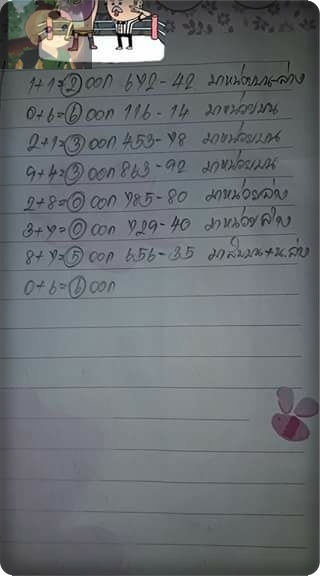 1+1=2 ออก 672-42 มาหน่วยบน-ล่าง
0+6=6 ออก 116-14 มาหน่วยบน
2+1=3 ออก 453-78 มาหน่วยบน
9+4=3 ออก 863-92 มาหน่วยบน
2+8=0 ออก 785-80 มาหน่วยล่าง
3+7=0 ออก 729-40 มาหน่วยล่าง
8+7=5 ออก 656-35 มาสิบบน+น.ล่าง
0+6=6 ออก